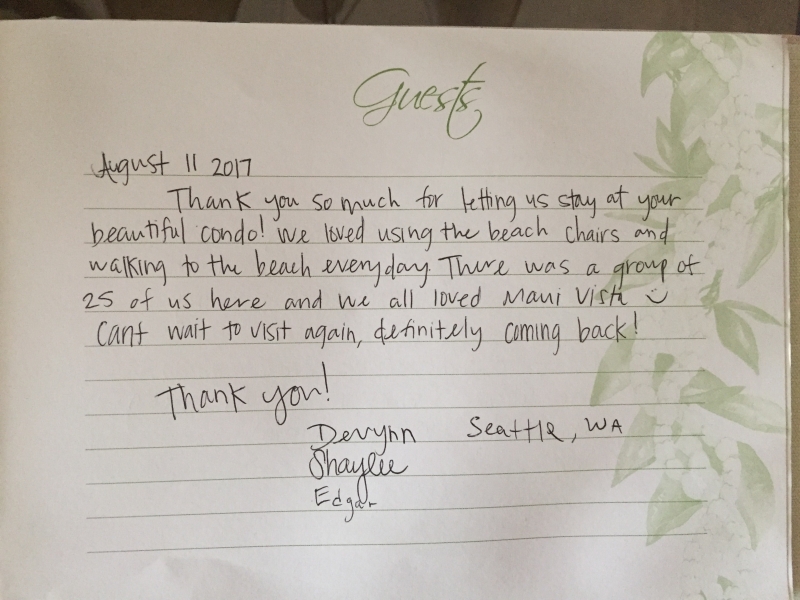 Guests
August 11 2017
Thank you so much for letting us stay at your
beautiful condo! We loved using the beach chairs and
walking to the beach everyday. There was a group of
25 of us here and we all loved Maui Vista ☺
Cant wait to visit again, definitely coming back!
Thank you!
Devynn Seattle, WA
Shaylee
Edgar